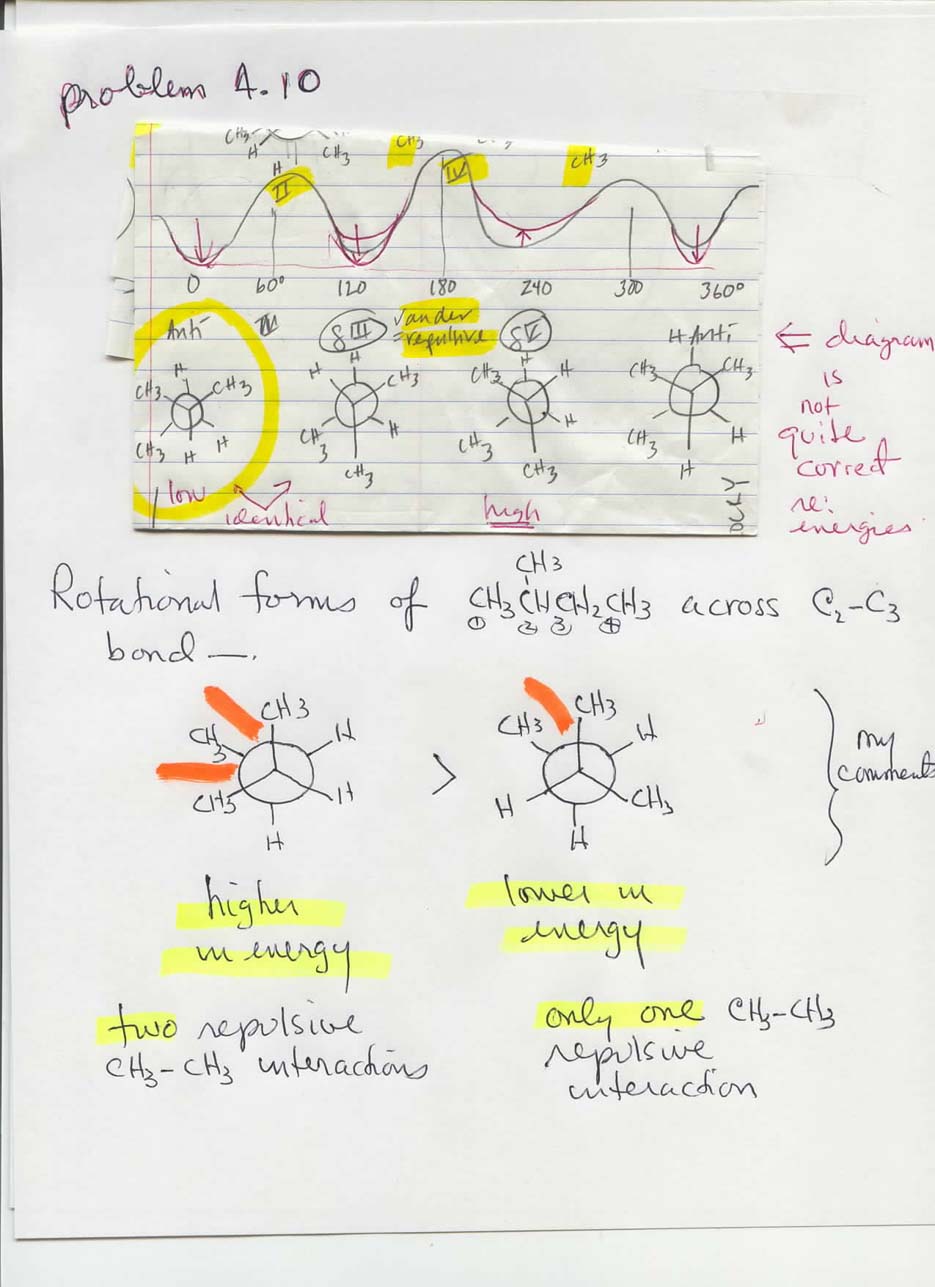 problem 4.10
CH3 H CH3 CH3 CH3
H
II IV
0 60° 120 180 240 300 360°
Anti IV 8 III Vander 8 V H Anti
=repulsive
H H H H
CH3 CH3 H CH3 CH3 H CH3 CH3
CH3 H H CH3 H CH3 H CH3 H
CH3 CH3 H
low identical high
⇐ diagram
is
not
quite
correct
re:
energies
Rotational forms of CH3CHCH2CH3 across C2-C3
CH3
① ② ③ ④
bond —.
CH3 CH3
CH3 H CH3 H
>
CH3 H H CH3
H H
my
comments
higher
in energy
lower in
energy
two repulsive
CH3-CH3 interactions
only one CH3-CH3
repulsive
interaction